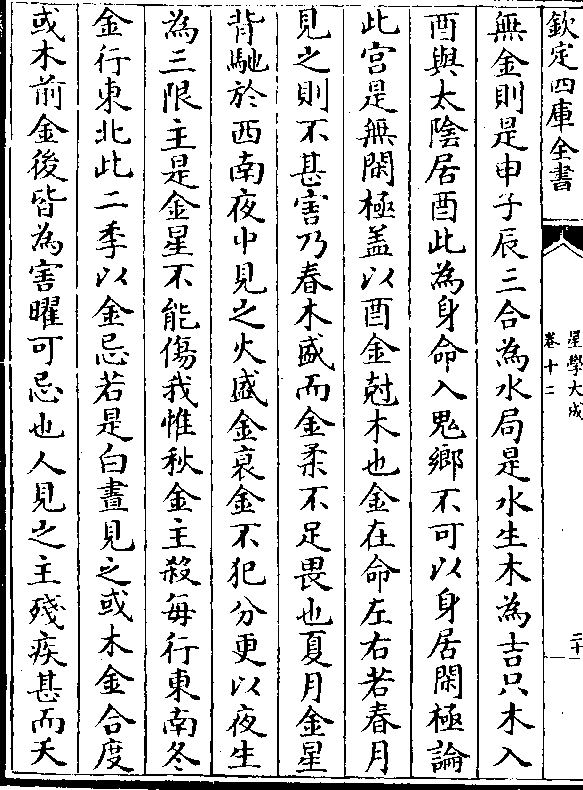 欽定四庫全書
星學大成
卷十二
二十一
無金則是申子辰三合為水局是水生木為吉只木入
酉與太陰居酉此為身命入鬼鄉不可以身居閑極論
此宮是無閑極盖以酉金尅木也金在命左右若春月
見之則不甚害乃春木盛而金柔不足畏也夏月金星
背馳於西南夜中見之火盛金衰金不犯分更以夜生
為三限主是金星不能傷我惟秋金主殺每行東南冬
金行東北此二季以金忌若是白晝見之或木金合度
或木前金後皆為害曜可忌也人見之主殘疾甚而夭